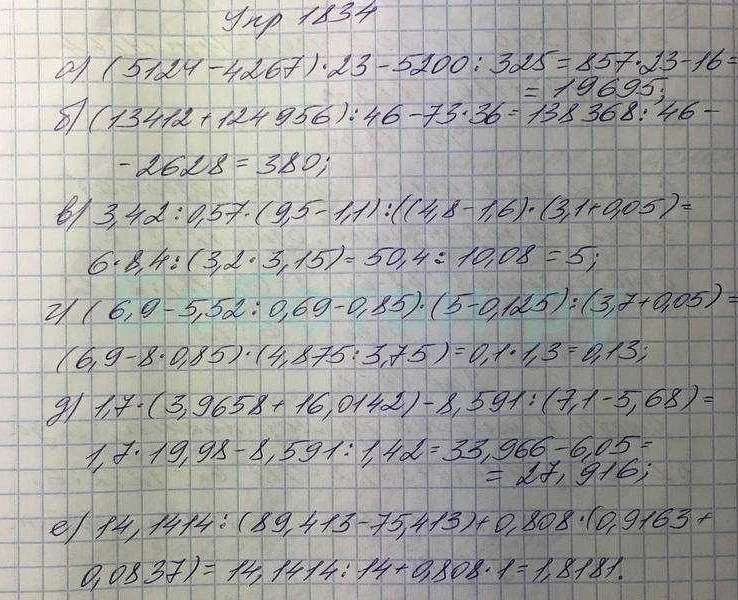 Упр 1834
а) (5124-4267)·23-5200:325=857·23-16=
=19695;
б) (13412+124956):46-73·36=138368:46-
-2628=380;
в) 3,42:0,57·(9,5-1,1):((4,8-1,6)·(3,1+0,05)=
6·8,4:(3,2·3,15)=50,4:10,08=5;
г) (6,9-5,52:0,69-0,85)·(5-0,125):(3,7+0,05)=
(6,9-8·0,85)·(4,875:3,75)=0,1·1,3=0,13;
д) 1,7·(3,9658+16,0142)-8,591:(7,1-5,68)=
1,7·19,98-8,591:1,42=33,966-6,05=
=27,916;
е) 14,1414:(89,413-75,413)+0,808·(0,9163+
0,0837)=14,1414:14+0,808·1=1,8181.